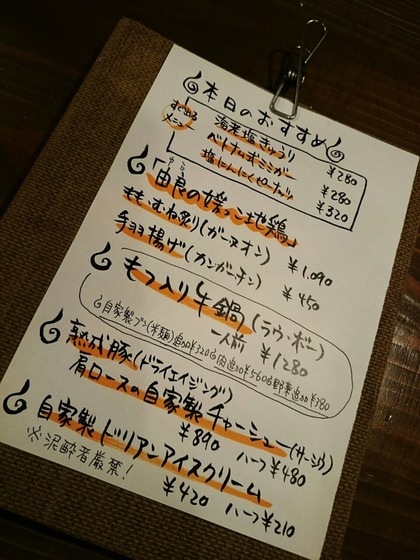 本日のおすすめ
すぐ出る
メニュー
海老塩きゅうり ¥280
ベトナムオミミガー ¥280
塩にんにくピーナッツ ¥320
「由良の媛っこ地鶏」
もも、むね炙り(ガーヌオン) ¥1,090
手羽揚げ(カンガーチン) ¥450
もつ入り牛鍋(ラウ・ボー)
一人前 ¥1280
自家製ブン(半麺)追加¥320 肉追加¥560 野菜追加¥380
熟成豚(ドライエイジング)
肩ロースの自家製チャーシュー(サーシウ)
¥890 ハーフ¥480
自家製ドリアンアイスクリーム
※泥酔者厳禁! ¥420 ハーフ¥210